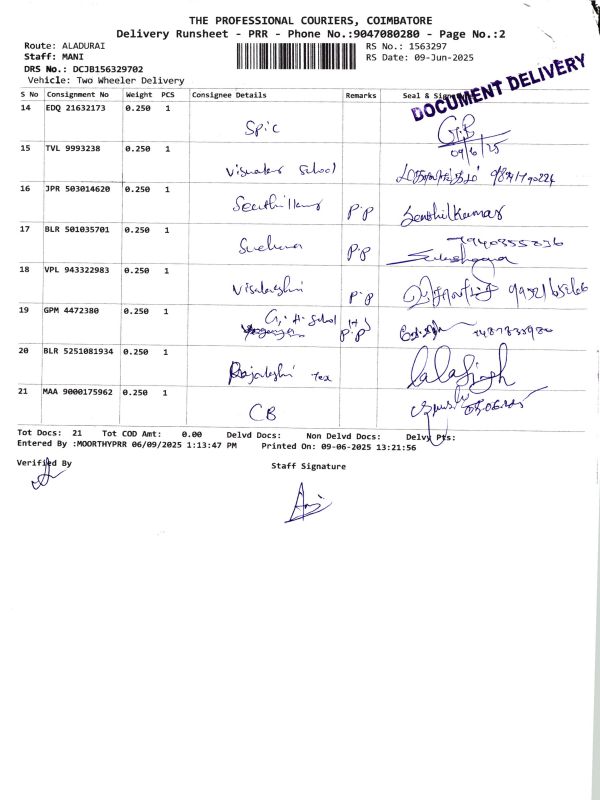 THE PROFESSIONAL COURIERS, COIMBATORE
Delivery Runsheet - PRR - Phone No.:9047080280 - Page No.:2
Route: ALADURAI
Staff: MANI
DRS No.: DCJB156329702
Vehicle: Two Wheeler Delivery
RS No.: 1563297
RS Date: 09-Jun-2025
DOCUMENT DELIVERY
S No Consignment No Weight PCS Consignee Details Remarks Seal &
14 EDQ 21632173 0.250 1 Spic
09/6/25
15 TVL 9993238 0.250 1 School
16 JPR 503014620 0.250 1 Senthilkumar P.P Senthilkumar
17 BLR 501035701 0.250 1 P.P
18 VPL 943322983 0.250 1 Visalakshi P.P
19 GPM 4472380 0.250 1 G.H. School P.P
20 BLR 5251081934 0.250 1 Rajalakshi Tex
21 MAA 9000175962 0.250 1 CB
Tot Docs: 21 Tot COD Amt: 0.00 Delvd Docs: Non Delvd Docs: Delvy Pts:
Entered By :MOORTHYPRR 06/09/2025 1:13:47 PM Printed On: 09-06-2025 13:21:56
Verified By
Staff Signature